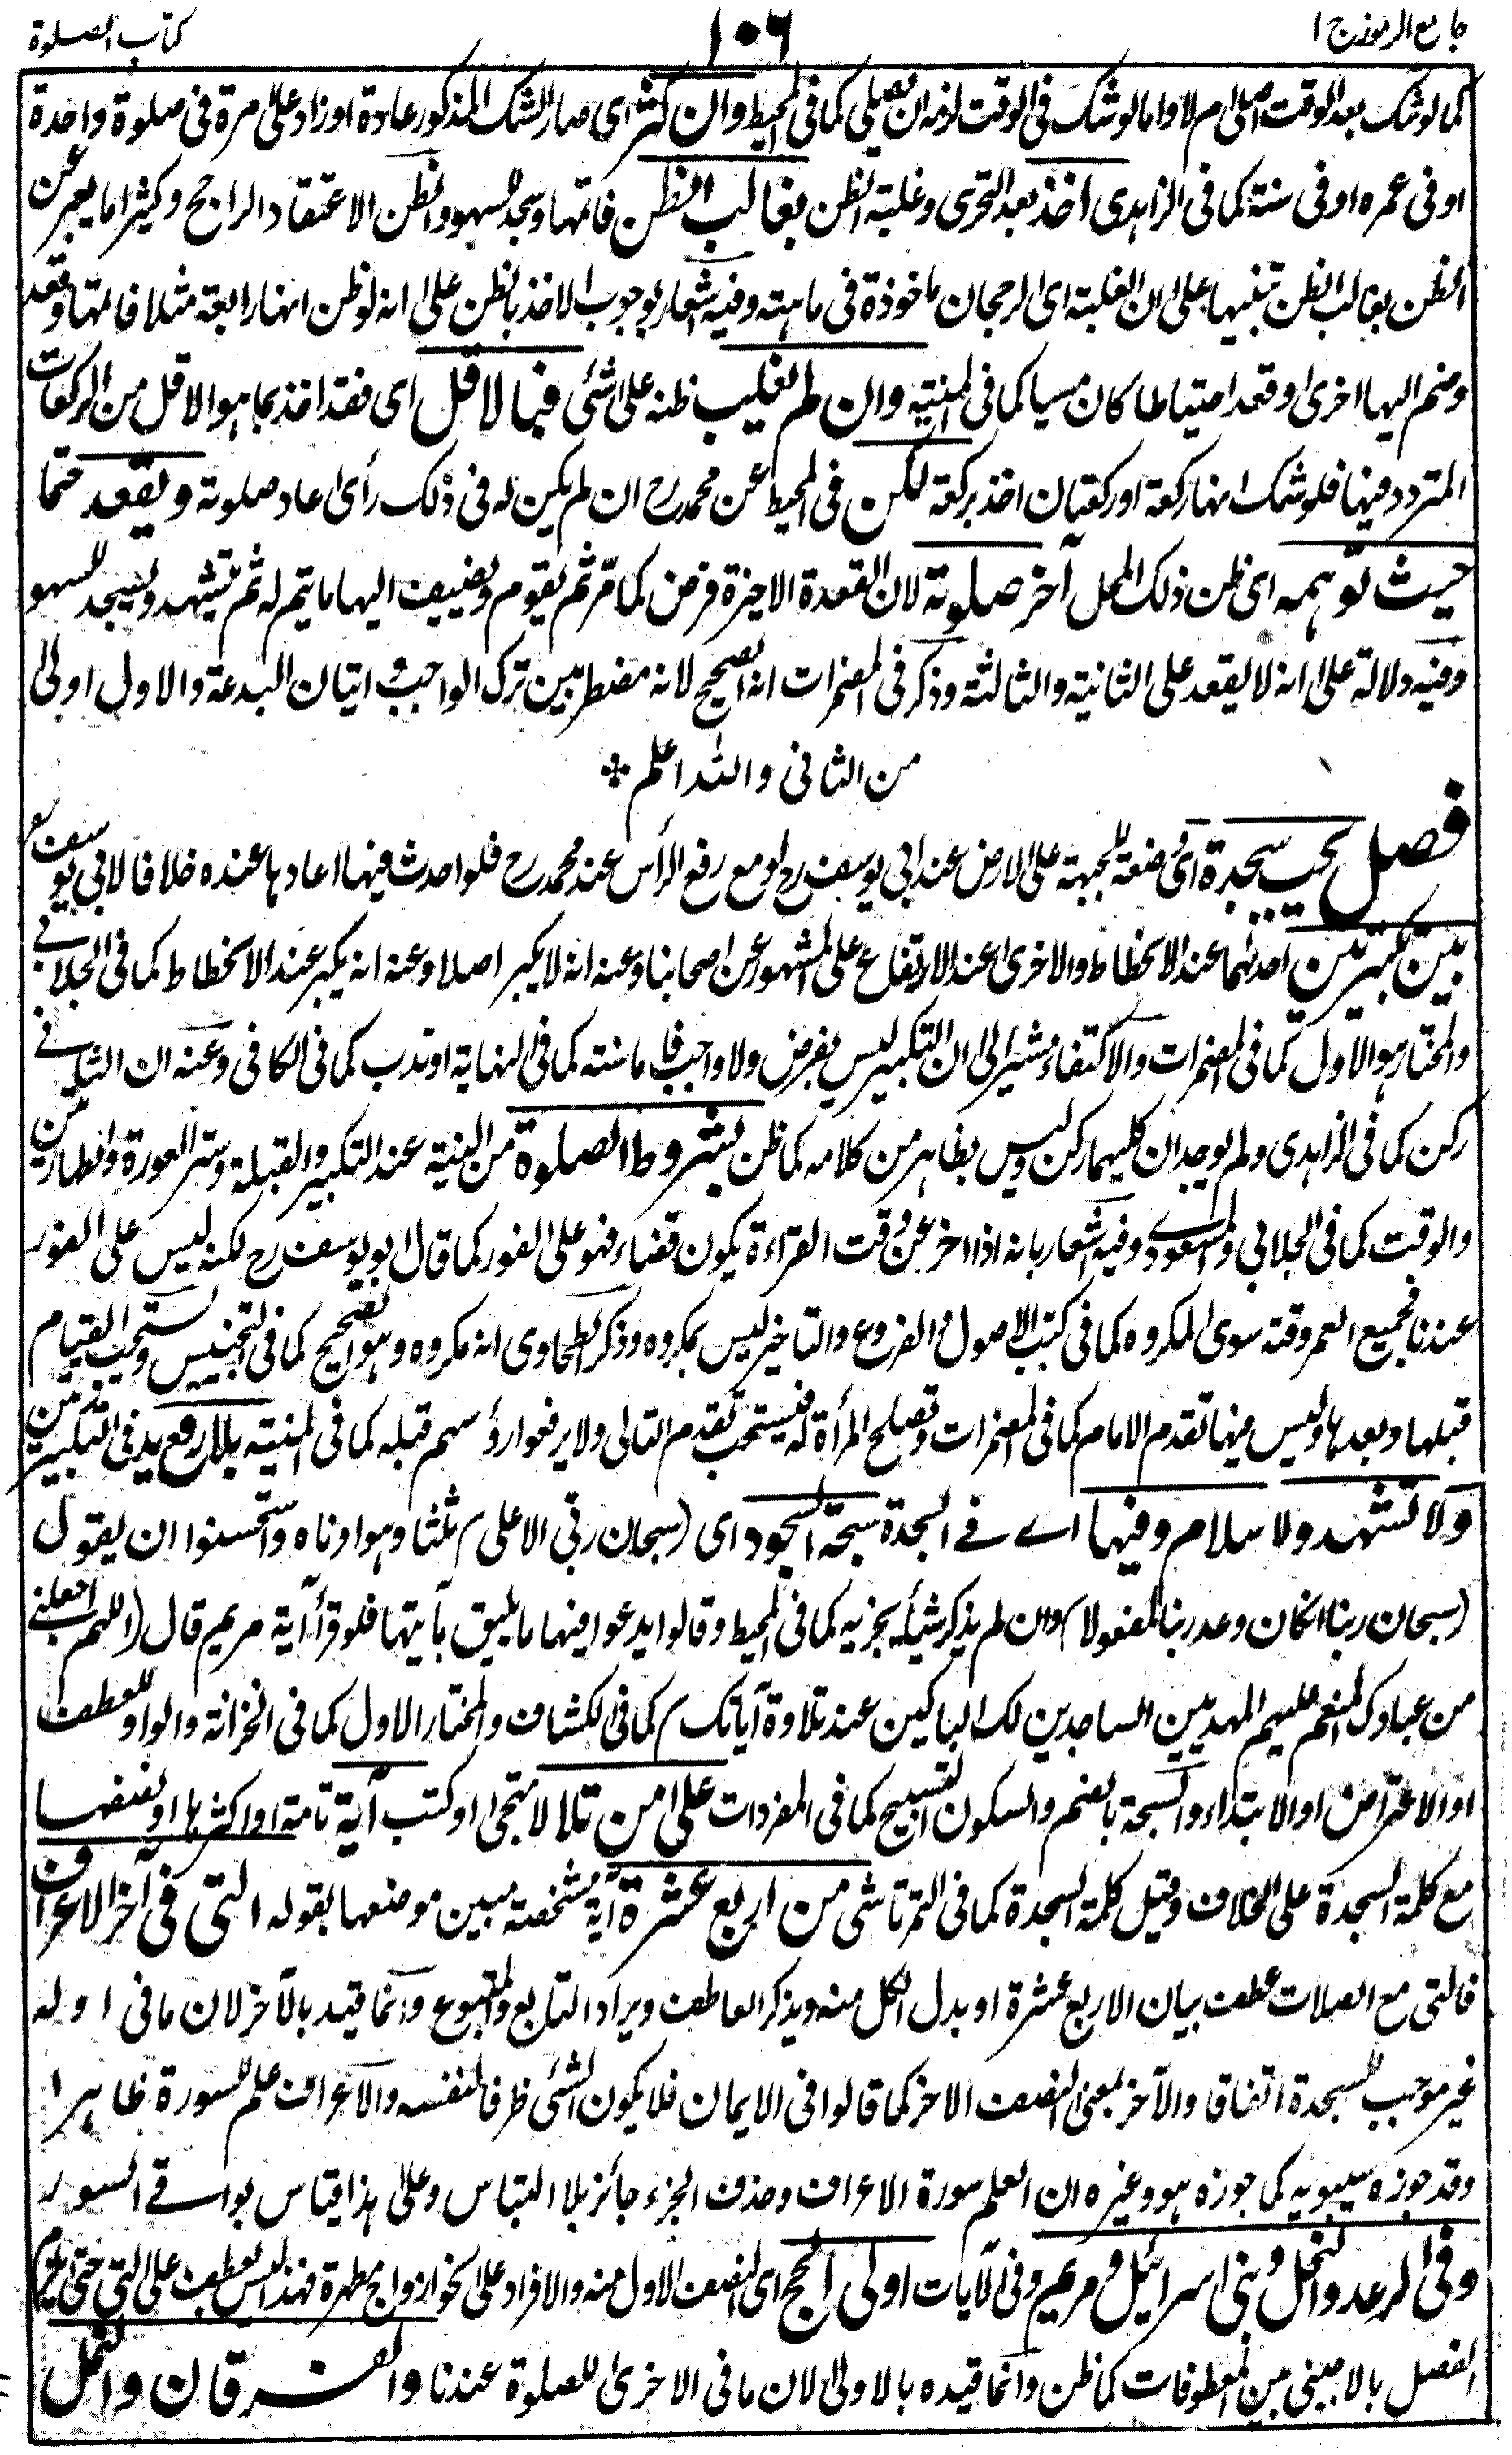 جامع الرموز ج ١
١٠٦
كتاب الصلوة
كما لو شك بعد الوقت اصلى ام لا واما لو شك فى الوقت لزمه ان يصلى كما فى المحيط وان كثر اى صار الشك المذكور عادة او زاد على مرة فى صلوة واحدة
او فى عمره او فى سنة كما فى الزاهدى اخذ بعد التحرى وغلبة الظن بغالب الظن فاتمها وسجد للسهو والظن الاعتقاد الراجح وكثيرا ما يعبر عن
الظن بغالب الظن تنبيها على ان الغلبة اى الرجحان ماخوذة فى ماهيته وفيه اشعار بوجوب الاخذ بالظن على انه لو ظن انها رابعة مثلا فاتمها وقعد
وضم اليها اخرى وقعد احتياطا كان مسيا كما فى المنية وان لم يغلب ظنه على شئ فبالاقل اى فقد اخذ بما هو الاقل من الركعات
المتردد فيها فلو شك انها ركعة او ركعتان اخذ بركعة لكن فى المحيط عن محمد رح ان لم يكن له فى ذلك رأى اعاد صلوته ويقعد حتما
حيث توهمه اى ظن ذلك المحل آخر صلوته لان القعدة الاخيرة فرض كما مر ثم يقوم ويضيف اليها ما يتم له ثم يتشهد ويسجد للسهو
وفيه دلالة على انه لا يقعد على الثانية والثالثة وذكر فى المضمرات انه الصحيح لانه مضطر بين ترك الواجب و اتيان البدعة والاول اولى
من الثانى والله اعلم
فصل يجب سجدة اى وضعة الجبهة على الارض عند ابى يوسف رح او مع رفع الرأس عند محمد رح فلو احدث فيها اعادها عنده خلافا لابى يوسف
بين تكبيرتين احدٰهما عند الانحطاط والاخرى عند الارتفاع على المشهور عن اصحابنا وعنه انه لا يكبر اصلا وعنه انه يكبر عند الانحطاط كما فى الجلابى
والمختار هو الاول كما فى المضمرات والاكتفاء مشير الى ان التكبير ليس بفرض ولا واجب فاما سنة كما فى النهاية او ندب كما فى الكافى وعنه ان الثانى
ركن كما فى الزاهدى ولم يوجد ان كليهما ركن وليس بظاهر من كلامه كما ظن بشروط الصلوة من النية عند التكبير والقبلة وستر العورة والطهارتين
والوقت كما فى الجلابى والمسعودى وفيه اشعار بانه اذا اخر عن وقت القراءة يكون قضاء فهو على الفور كما قال ابو يوسف رح لكنه ليس على الفور
عندنا فجميع العمر وقته سوى المكروه كما فى كتب الاصول و الفروع والتاخير ليس بمكروه وذكر الطحاوى انه مكروه وهو الصحيح كما فى التجنيس ويستحب القيام
قبلها وبعدها وليس فيها تقدم الامام كما فى المضمرات وتصلح المرأة له فيستحب تقدم التالى ولا يرفعوا رؤسهم قبله كما فى المنية بلا رفع يد فى التكبيرتين
ولا تشهد ولا سلام وفيها اى فى السجدة سبحة السجود اى (سبحان ربى الاعلى) ثلثا وهو ادناه واستحسنوا ان يقول
(سبحان ربنا ان كان وعد ربنا لمفعولا) وان لم يذكر شيأ يجزيه كما فى المحيط وقالوا يدعوا فيها ما يليق بآيتها فلو قرأ آية مريم قال (اللهم اجعلنى
من عبادك المنعم عليهم المهديين الساجدين لك الباكين عند تلاوة آياتك) كما فى الكشاف والمختار الاول كما فى الخزانة والواو للعطف
او الاعتراض او الابتداء والسبحة بالضم والسكون التسبيح كما فى المفردات على من تلا لا تهجى او كتب آية تامة او اكثرها او نصفها
مع كلمة السجدة على الخلاف وقيل كلمة السجدة كما فى التمرتاشى من اربع عشرة آية مشخصة مبين موضعها بقوله التى فى آخر الاعراف
فالتى مع الصلات عطف بيان الاربع عشرة او بدل الكل منه ويذكر العاطف ويراد التابع والمتبوع وانما قيد بالآخر لان ما فى اوله
غير موجب للسجدة اتفاقا والآخر بمعنى النصف الاخر كما قالوا فى الايمان فلا يكون الشئ ظرفا لنفسه والاعراف علم للسورة ظاهرا
وقد جوزه سيبويه كما جوزه هو وغيره ان العلم سورة الاعراف وحذف الجزء جائز بلا التباس وعلى هذا قياس بواقى السور
وفى الرعد والنحل وبنى اسرائيل و مريم وفى الآيات اولى الحج اى النصف الاول منه والافراد على نحو ازواج مطهرة فهذا ليس بعطف على التى حتى يلزم
الفصل بالاجنبى بين المعطوفات كما ظن وانما قيده بالاولى لان ما فى الاخرى للصلوة عندنا والفرقان والنمل